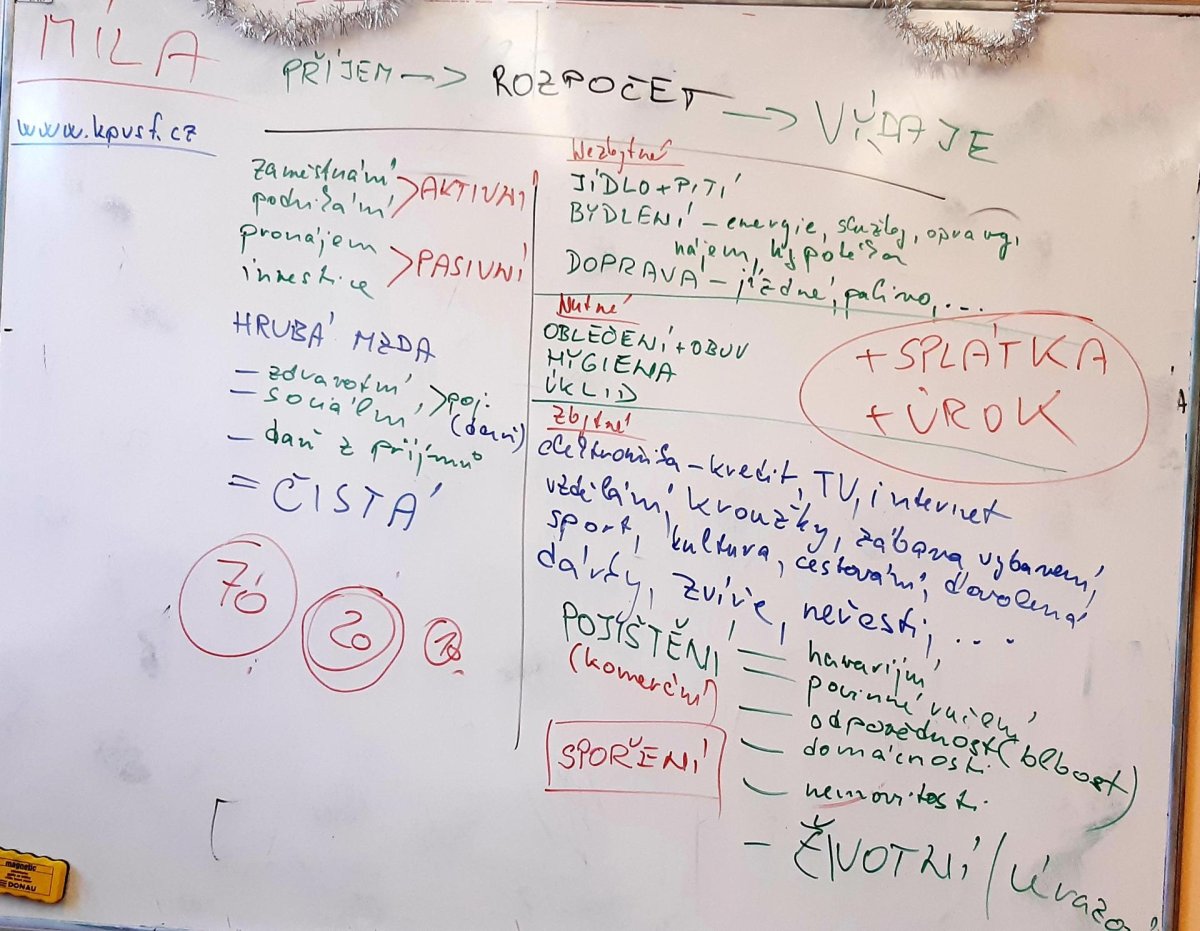 MÍLA
www.kpvsf.cz
PŘÍJEM → ROZPOČET → VÝDAJE
zaměstnání
podnikání
> AKTIVNÍ
pronájem
investice
> PASIVNÍ
HRUBÁ MZDA
– zdravotní
– sociální
> poj.
(daně)
– daň z příjmů
= ČISTÁ
70
20
10
Nezbytné
JÍDLO + PITÍ
BYDLENÍ – energie, služby, opravy,
nájem, hypotéka
DOPRAVA – jízdné, palivo, ...
Nutné
OBLEČENÍ + OBUV
HYGIENA
ÚKLID
+ SPLÁTKA
+ ÚROK
Zbytné
elektronika – kredit, TV, internet
vzdělání, kroužky, zábava, vybavení,
sport, kultura, cestování, dovolená
dárky, zvíře, neřesti, ...
POJIŠTĚNÍ
(komerční)
– havarijní
– povinné ručení
– odpovědnost (blbost)
– domácnosti
– nemovitosti
– ŽIVOTNÍ / úrazo
SPOŘENÍ
magnetic
DONAU